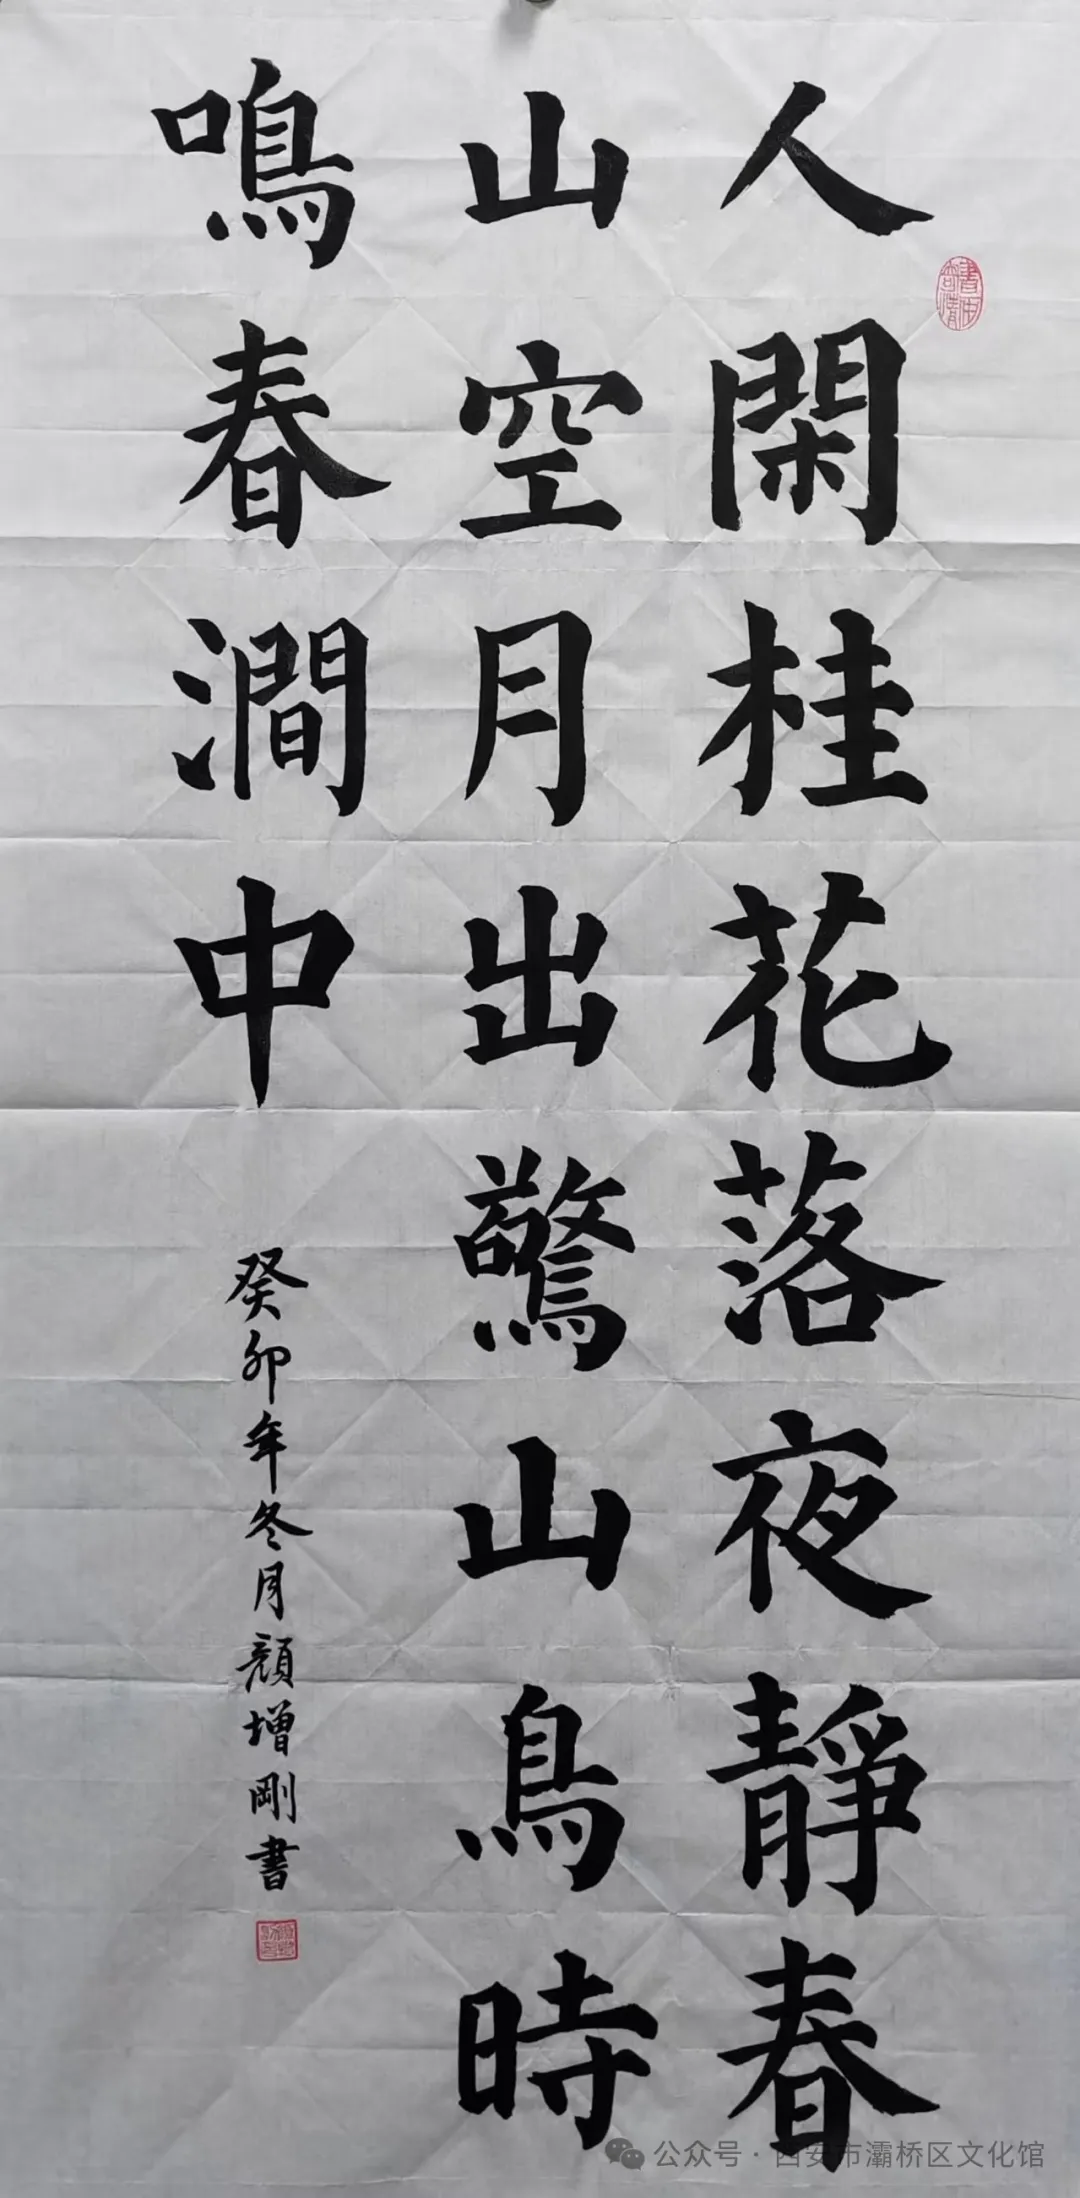 人閑桂花落夜靜春
山空月出驚山鳥時
鳴春澗中
癸卯年冬月顏增剛書
公众号 · 西安市灞桥区文化馆